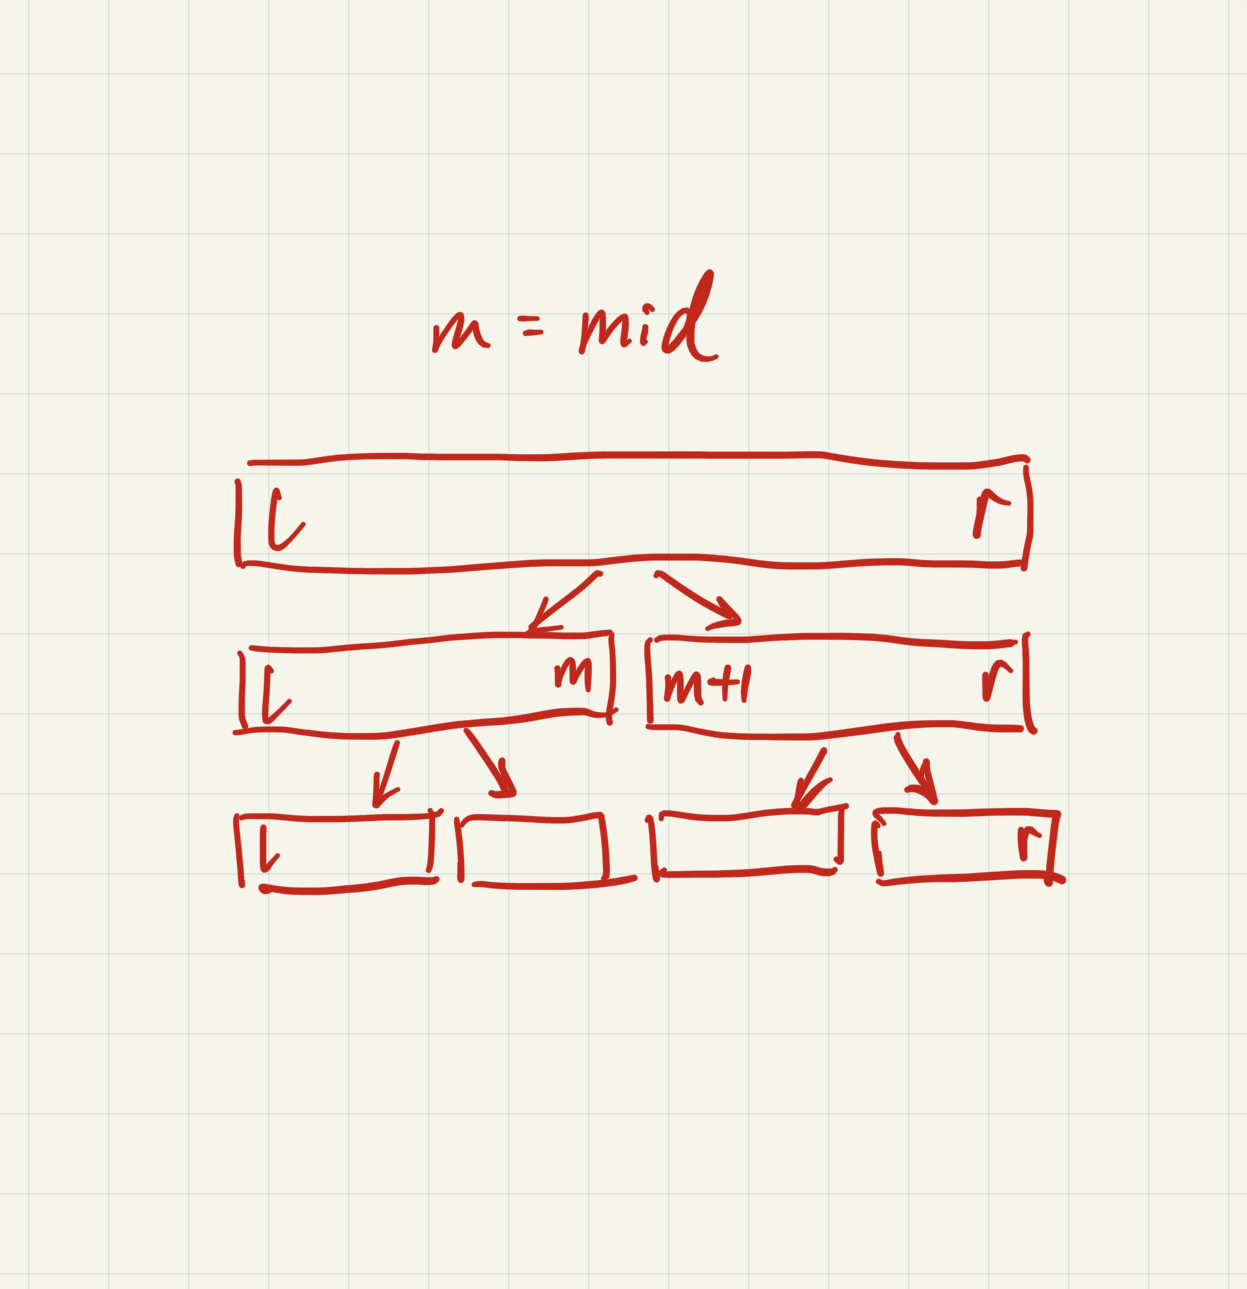 m = mid
l r
l m m+1 r
l r